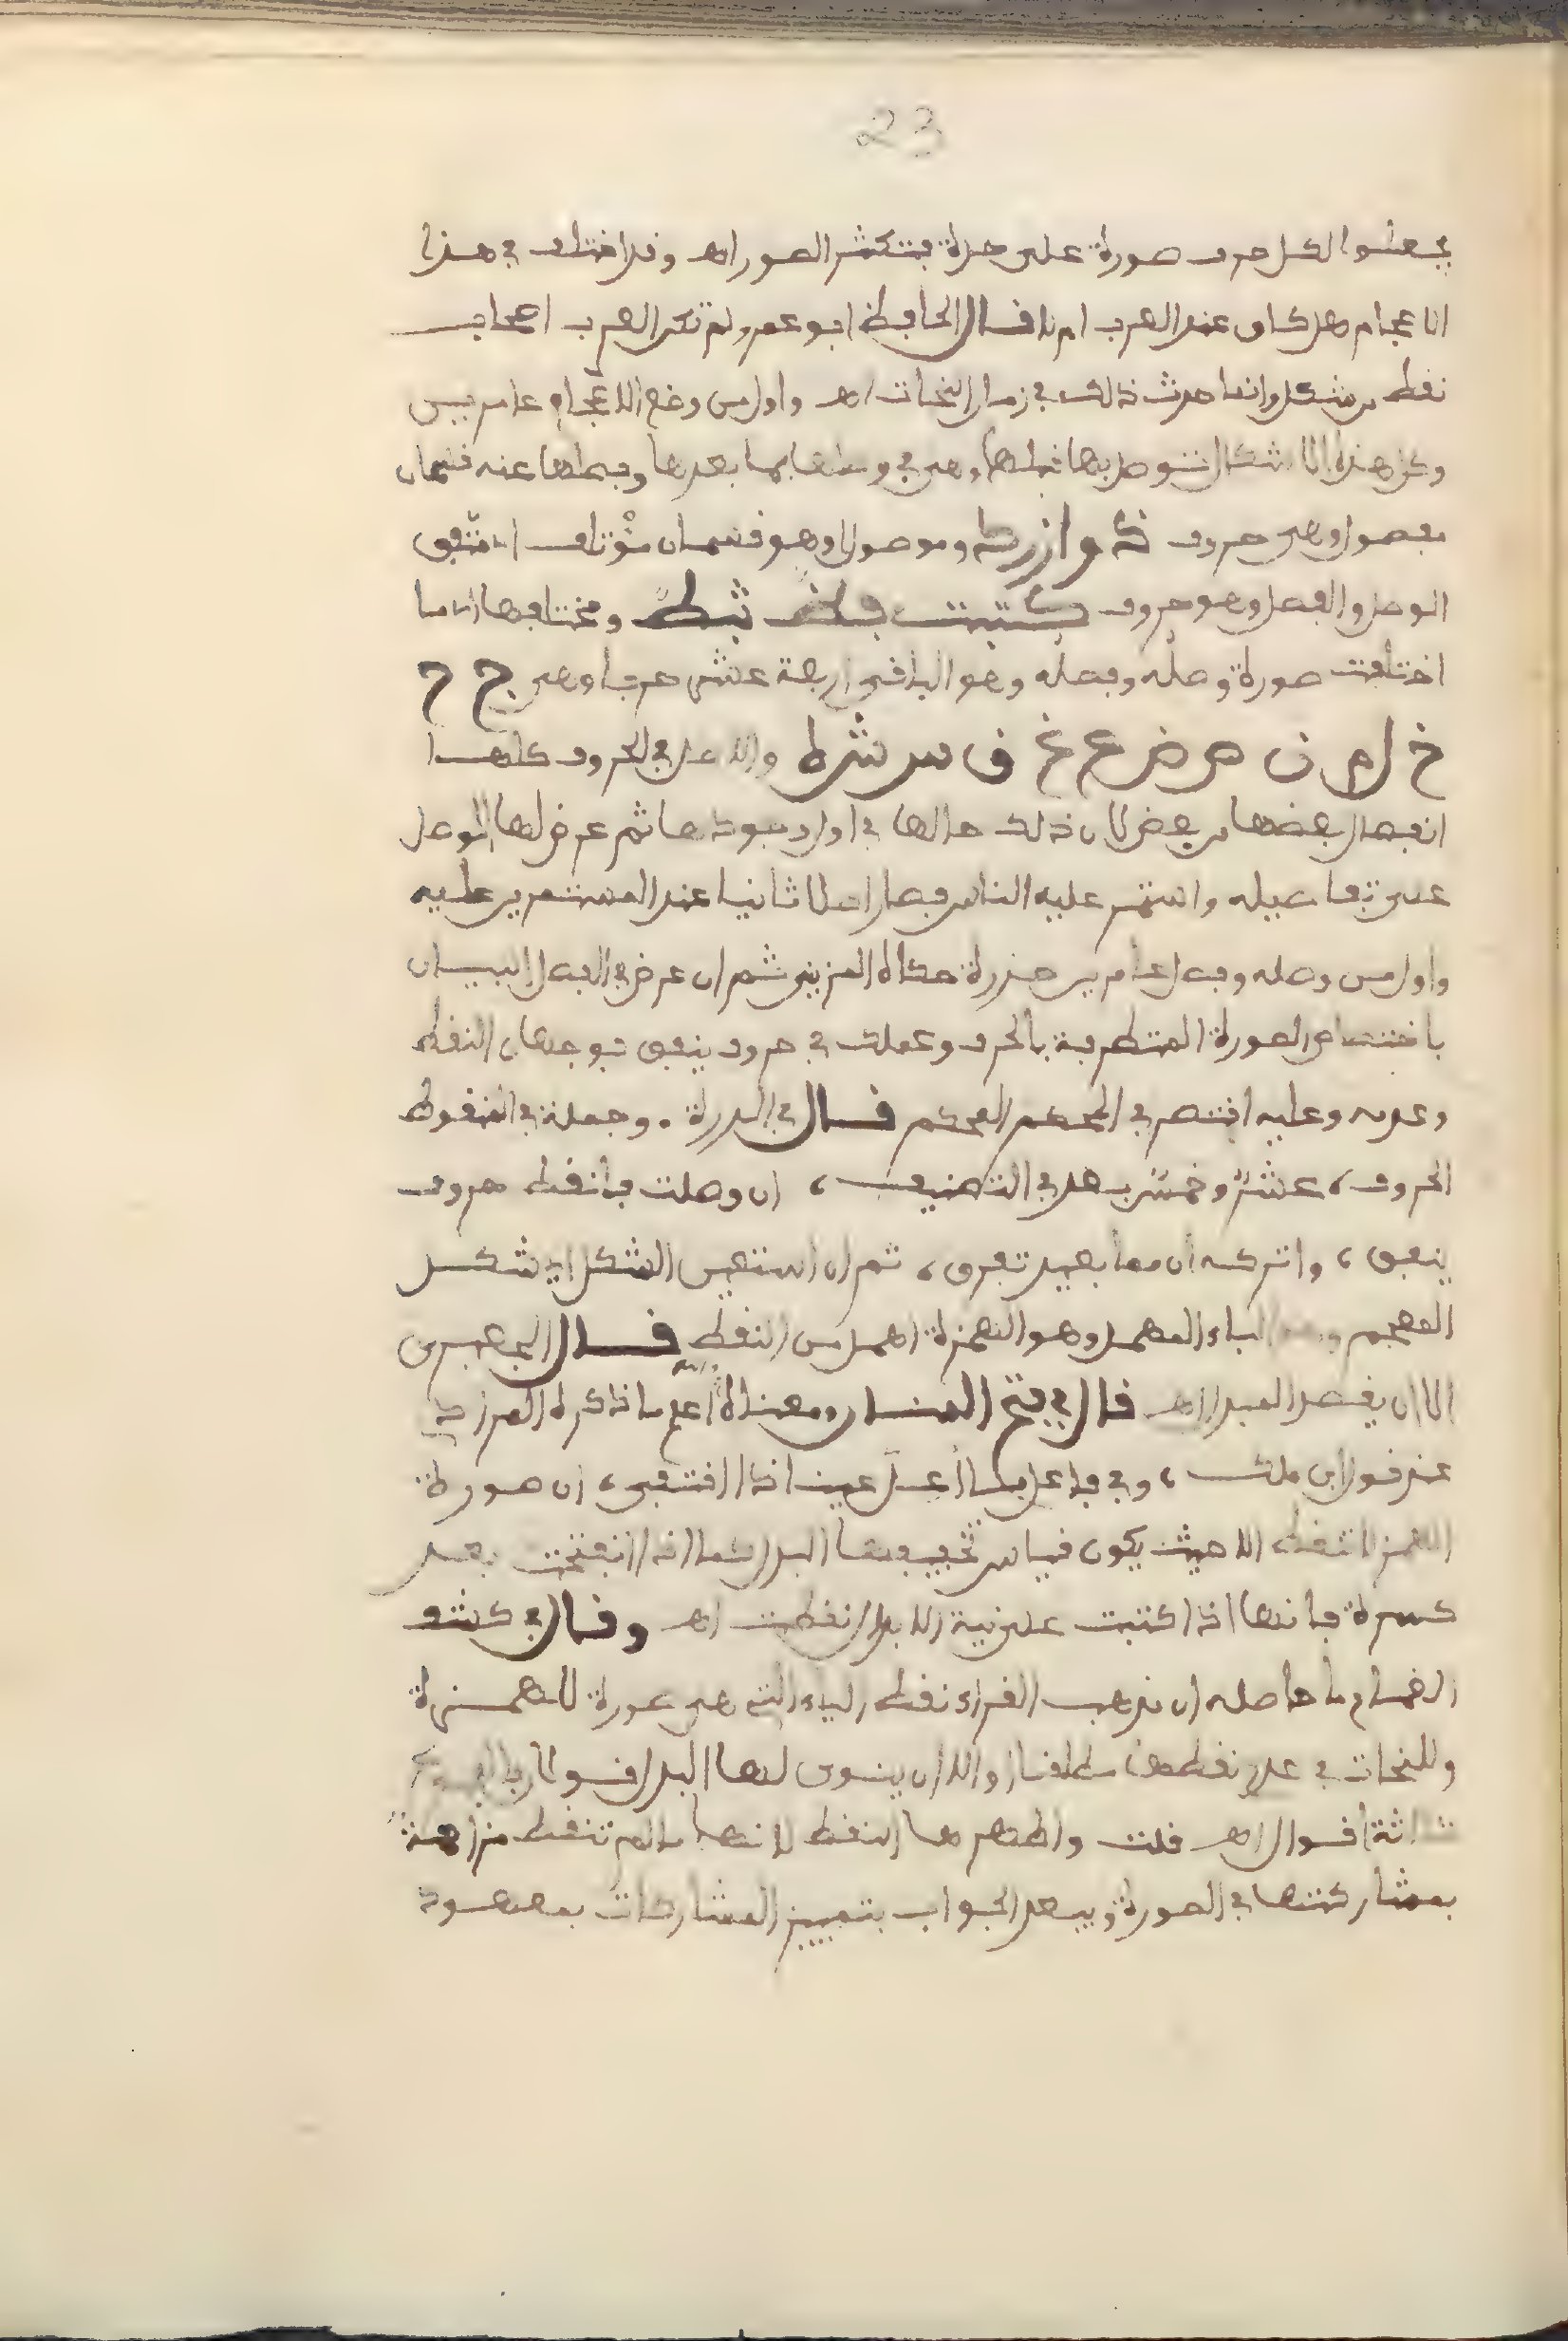 23
يجعلوا لكل حرف صورة على حدة فتكثر الصور اهـ وقد اختلف في هذا
الاعجام هل كان عند العرب ام لا قال الحافظ ابو عمرو لم تكن العرب اصحاب
نقط وشكل وانما حدث ذلك في زمان النحات اهـ واول من وضع الاعجام عامر
وكل هذه الاشكال توصل بما قبلها وهي في وصلها بما بعدها وفصلها عنه قسمان
مفصول وهي حروف وموصول وهو قسمان مؤتلف اي متفق
الوصل والفصل وهو حروف ومختلفها اي ما
اختلفت صورة وصله وفصله وهو الباقي اربعة عشر حرفا وهي ج ح
خ ل م ن ص ض ع غ ق س ش والاصل في الحروف كلها
انفصال بعضها من بعض لان ذلك حالها في اول وجودها ثم عرض لها الوصل
على تفاصيله واستمر عليه الناس فصار اصلا ثانيا عند المستمرين عليه
واول من وصله وفصل عامر حكاه ثم ان عرض في الفصل البيان
باختصاص الصورة المتطرفة بالحرف وعملك في حروف ينفق فوجهان النقط
وعدمه وعليه اقتصر في المحكم قال في الدررة . وجملة في المنقوط
الحروف، عشر وخمس بعد في التصنيف، ان وصلت فانقط حروف
ينفق، واتركه ان مما بعيد تفرق، ثم ان استعير الشكل اي شكل
المعجم وهو الياء المهمل وهو الهمزة اهمل من النقط قال الجعبري
الا ان يقصد البدل اهـ قال في فتح المنان ومعناه والله اعلم ما ذكره المرادي
عند قول ابن ملك، وفي فاعل ما اعل عينا ذا اقتفي، ان صورة
الهمز لا تنقط الا حيث يكون قياس تخفيفها البدل كما اذا انفتحت بعد
كسرة فانها اذا كتبت على نية الابدال نقطت اهـ وقال في كشف
الغمام ما حاصله ان مذهب القراء نقط الياء التي هي صورة للهمزة
وللنحات في عدم نقطها مطلقا او الا ان ينوى لها البدل قولان
ثلاثة اقوال اهـ قلت واظهرها النقط لانها ما لم تنقط
بمشاركتها في الصورة ويبعد الجواب بتمييز المشاركات